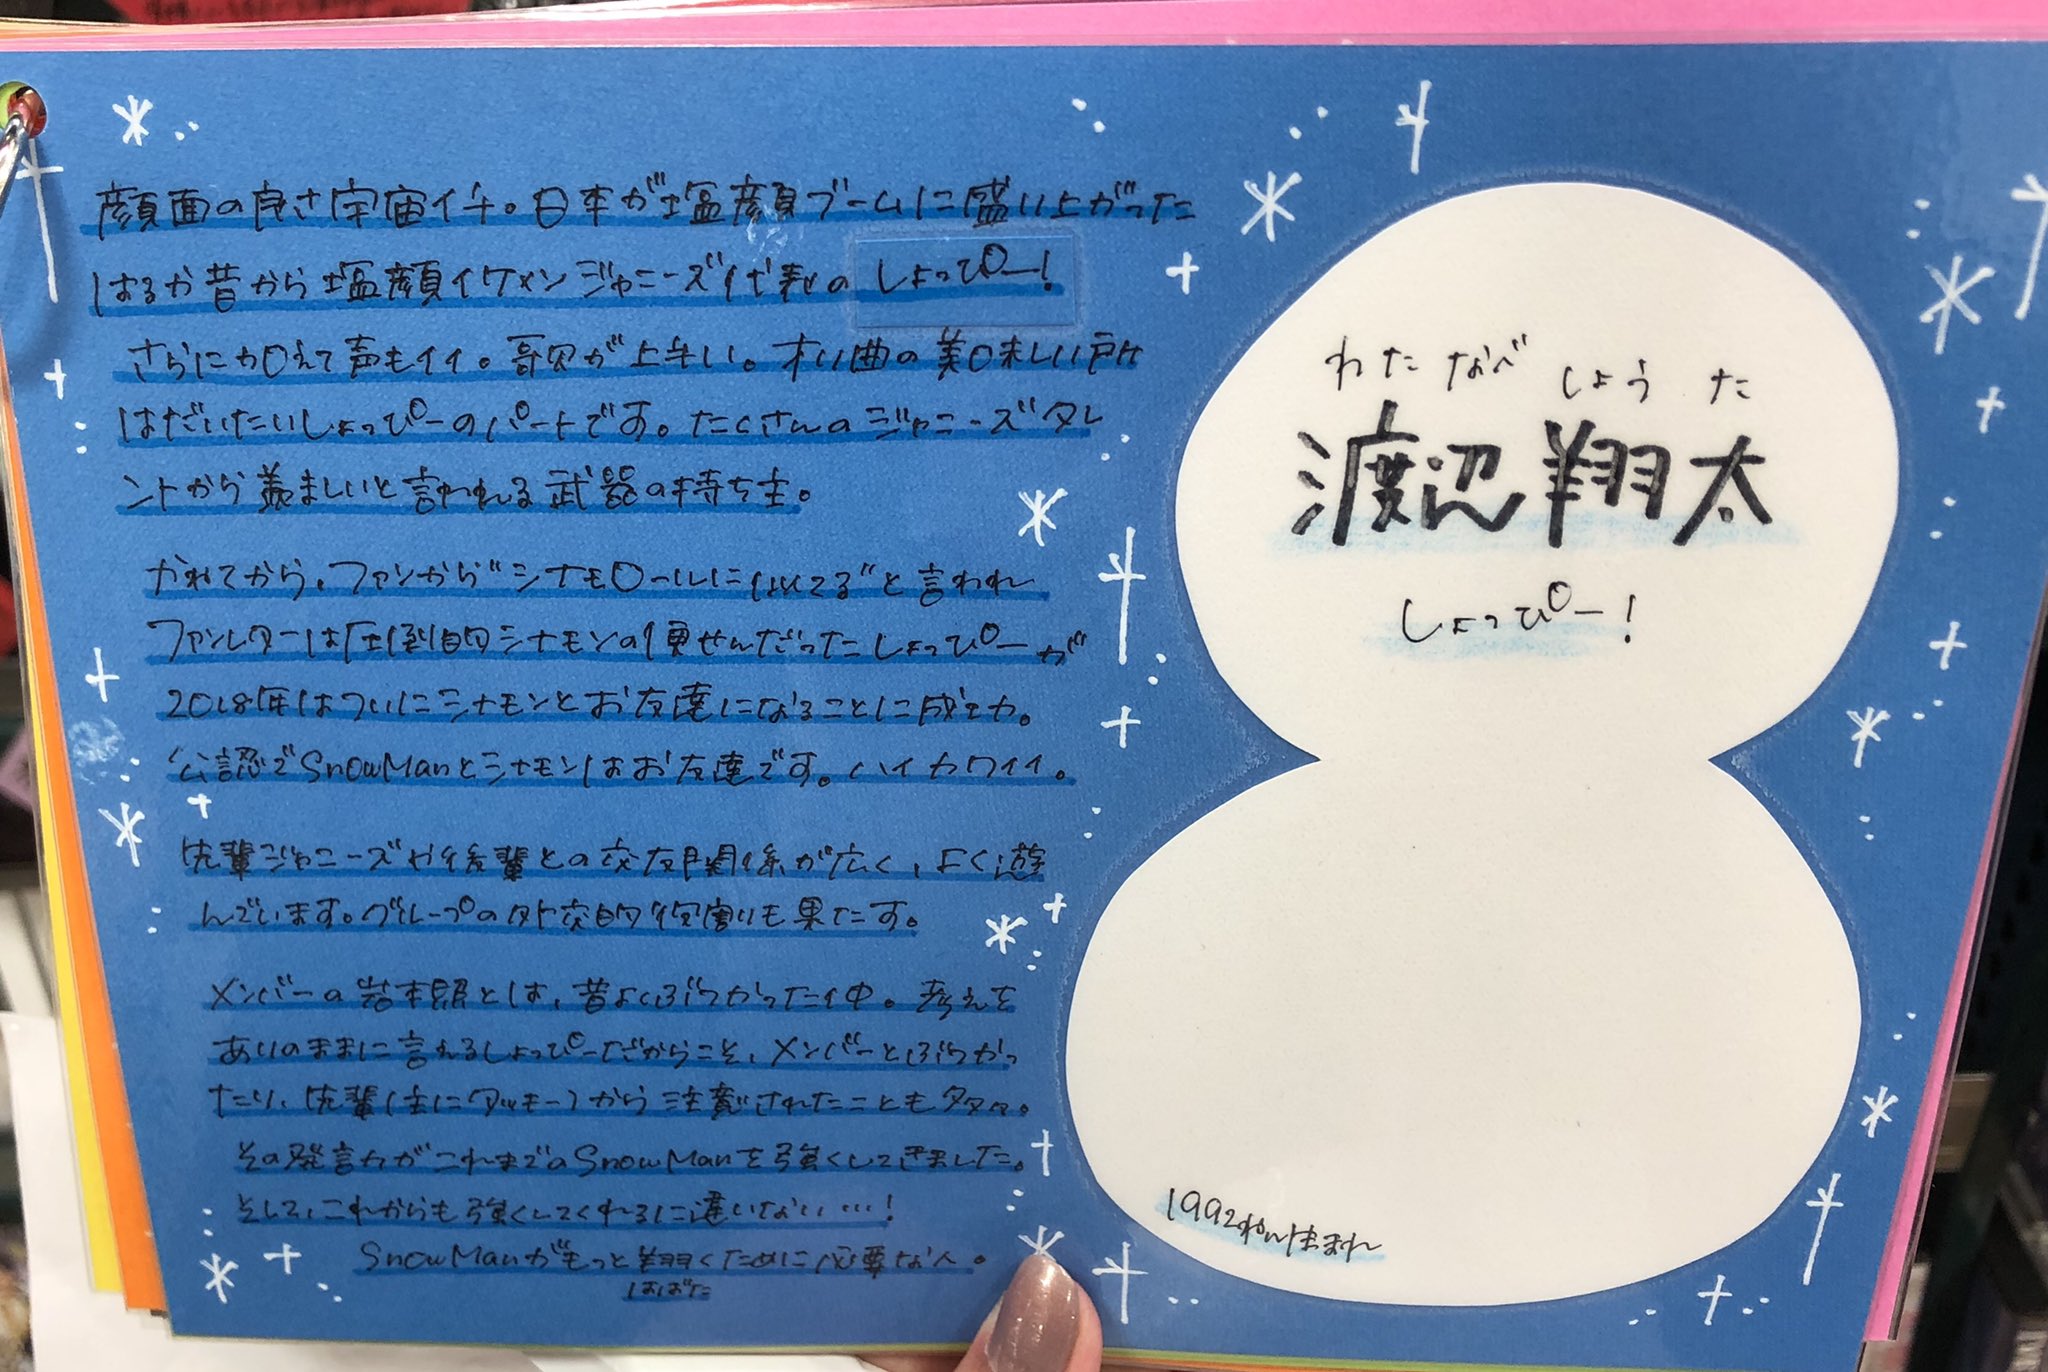 顔面の良さ宇宙イチ。日本が塩顔ブームに盛り上がった
はるか昔から塩顔イケメンジャニーズ代表のしょっぴー!
さらに加えて声もイイ。歌が上手い。オイ曲の美味しい所
はだいたいしょっぴーのパートです。たくさんのジャニーズタレ
ントから羨ましいと言われる武器の持ち主。
かねてから、ファンから"シナモロールに似てる"と言われ
ファンレターは圧倒的シナモンの便せんだったしょっぴーが
2018年はついにシナモンとお友達になることに成功。
公認でSnowManとシナモンはお友達です。ハイカワイイ。
先輩ジャニーズや後輩との交友関係が広く、よく遊
んでいます。グループの外交的役割りも果たす。
メンバーの岩本照とは、昔よくぶつかった仲。考えを
ありのままに言えるしょっぴーだからこそ、メンバーとぶつかっ
たり、先輩(主にタッキー)から注意されたことも多々。
その発言力がこれまでのSnowManを強くしてきました。
そして、これからも強くしてくれるに違いない…!
SnowManがもっと翔くために必要な人。
はばた
わたなべ しょうた
渡辺 翔太
しょっぴー!
1992ねんうまれ